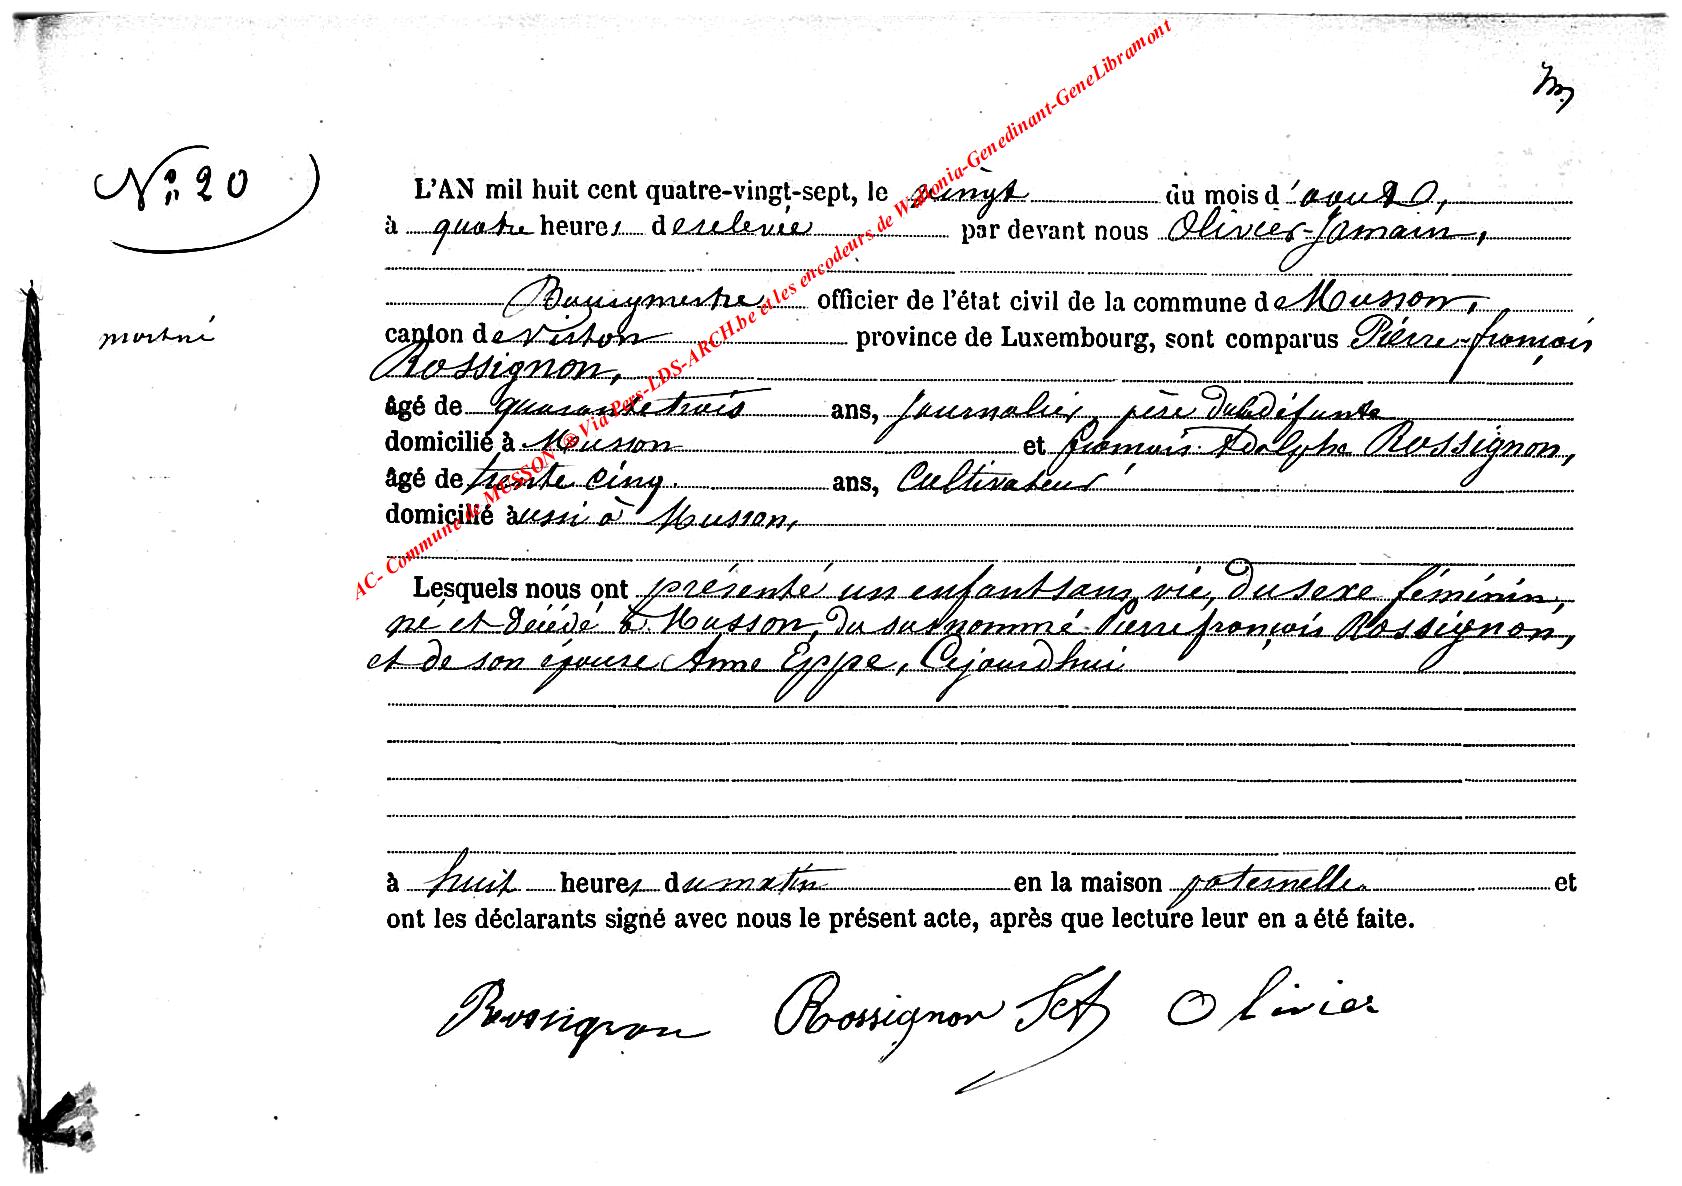 N° 20
L'AN mil huit cent quatre-vingt-sept, le vingt du mois d'aout,
à quatre heures de relevée par devant nous Olivier-Jamain,
Bourgmestre officier de l'état civil de la commune de Musson,
mortné
canton de Virton province de Luxembourg, sont comparus Pierre-françois
Rossignon,
âgé de quarante trois ans, Journalier, père de la défunte
domicilié à Musson et françois Adolphe Rossignon,
âgé de trente cinq ans, Cultivateur
domicilié aussi à Musson,
Lesquels nous ont présenté un enfant sans vie, du sexe féminin,
né et décédé à Musson, du susnommé Pierre françois Rossignon,
et de son épouse Anne Eppe, Cejourdhui
à huit heures du matin en la maison paternelle et
ont les déclarants signé avec nous le présent acte, après que lecture leur en a été faite.
Rossignon Rossignon Olivier
AC- Commune de MUSSON @ Via Pers-LDS-ARCH.be et les encodeurs de Wallonia-Genedinant-GeneLibramont